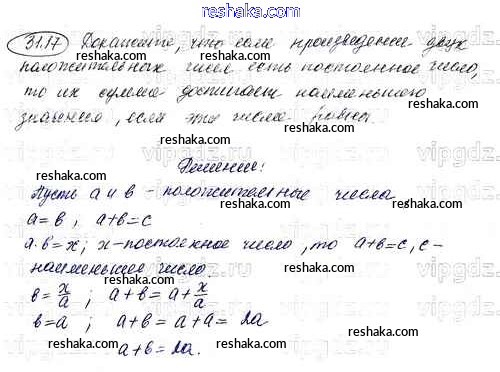 reshaka.com
31.17 Докажите, что если произведение двух
положительных чисел есть постоянное число,
то их сумма достигает наименьшего
значения, если эти числа равны.
reshaka.com
reshaka.com
Решение:
Пусть a и b - положительные числа,
a=b, a+b=c
a·b=x; x-постоянное число, то a+b=c, c-
наименьшее число.
b=x/a ; a+b=a+x/a
b=a ; a+b=a+a=2a
a+b=2a.
reshaka.com
reshaka.com
reshaka.com
reshaka.com
reshaka.com
reshaka.com
reshaka.com
vipgdz.
vipgdz.
vipgdz.